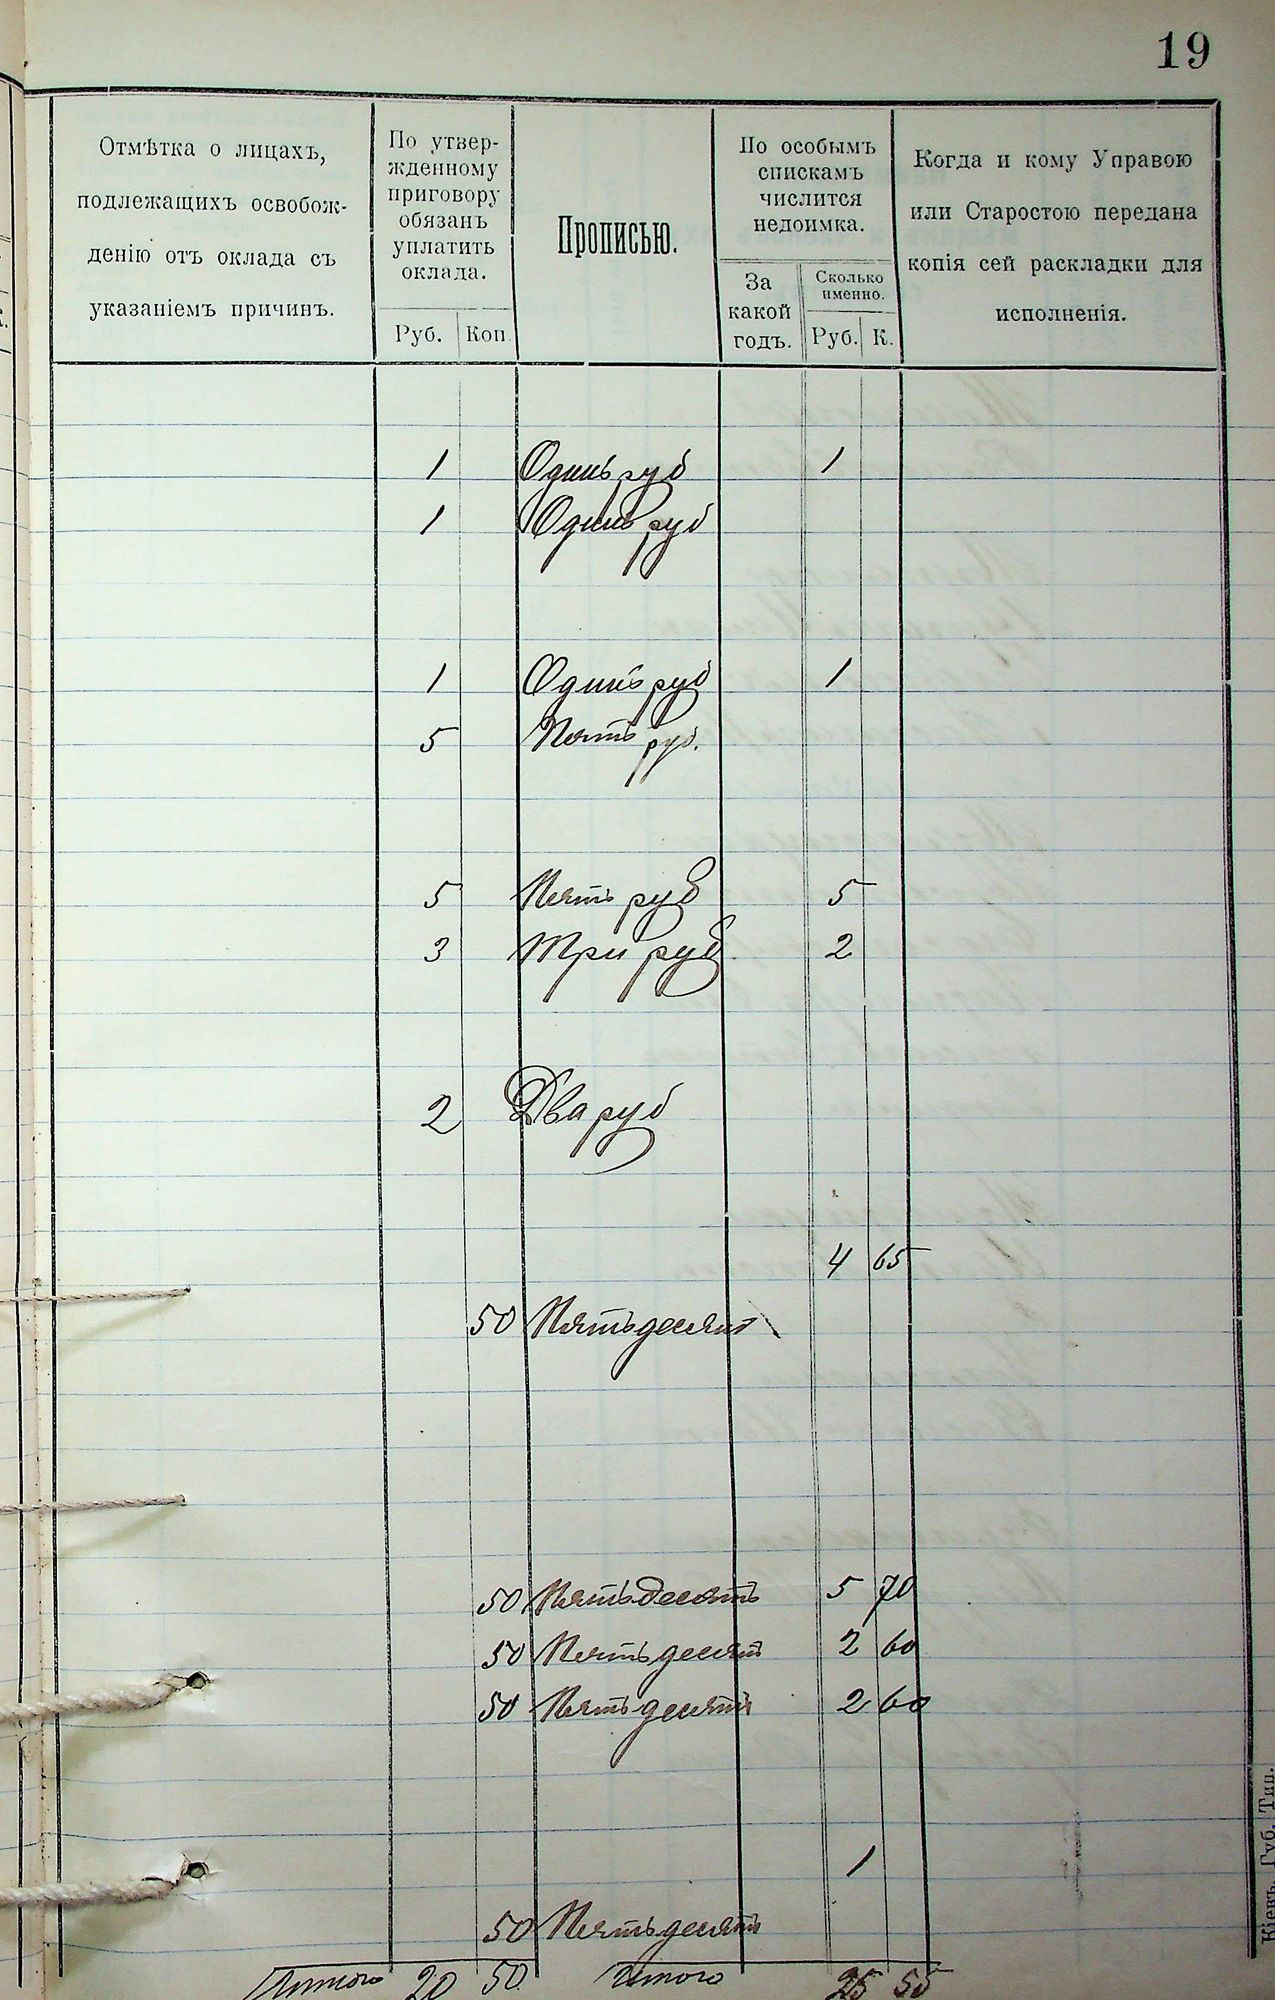 19
Отмѣтка о лицахъ,
подлежащихъ освобож-
денію отъ оклада съ
указаніемъ причинъ.
По утвер-
жденному
приговору
обязанъ
уплатить
оклада.
Руб. Коп.
Прописью.
По особымъ
спискамъ
числится
недоимка.
За
какой
годъ.
Сколько
именно.
Руб. К.
Когда и кому Управою
или Старостою передана
копія сей раскладки для
исполненія.
1 Одинъ руб 1
1 Одинъ руб
1 Одинъ руб 1
5 Пять руб.
5 Пять руб 5
3 Три руб. 2
2 Два руб
4 65
50 Пятьдесят
50 Пятьдесять 5 70
50 Пятьдесят 2 60
50 Пятьдесять 2 60
1
50 Пятьдесять
Итого 20 50 Итого 25 55
Кіевъ. Губ. Тип.